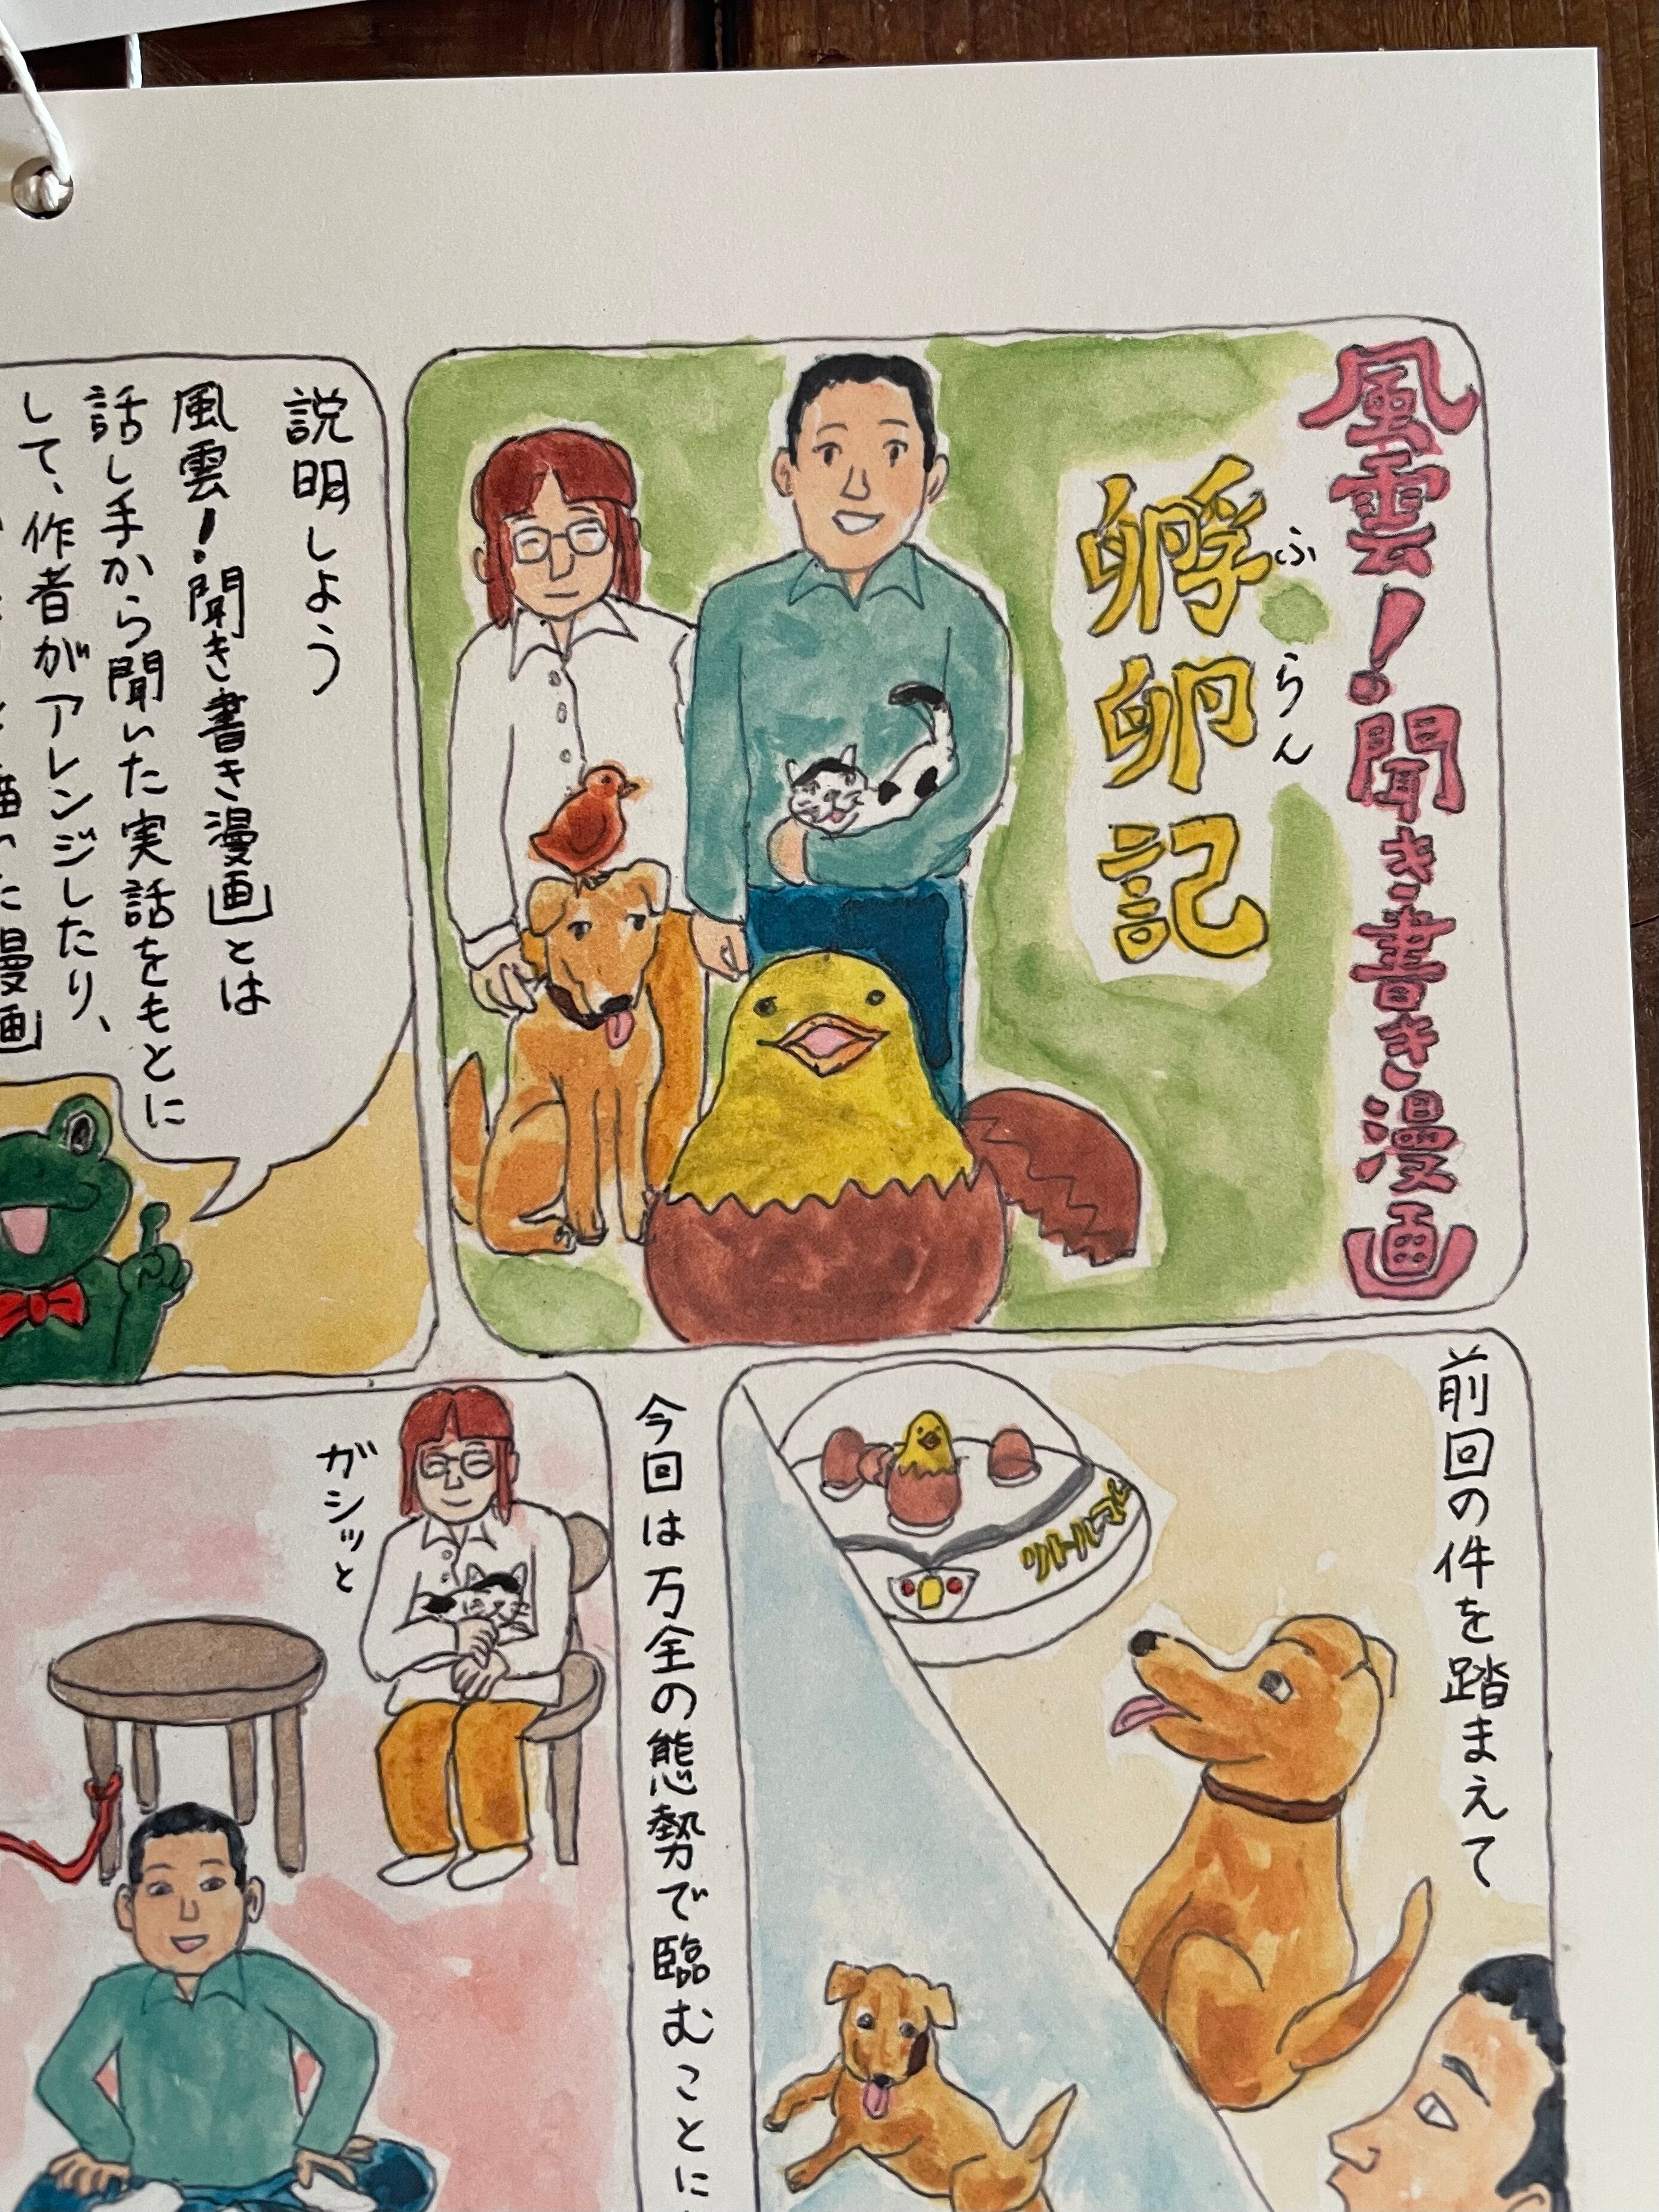 風雲!聞き書き漫画
孵卵記
ふらん
説明しよう
風雲!聞き書き漫画とは
話し手から聞いた実話をもとに
して、作者がアレンジしたり、
前回の件を踏まえて
リトルママ
今回は万全の態勢で臨むことに
ガシッと